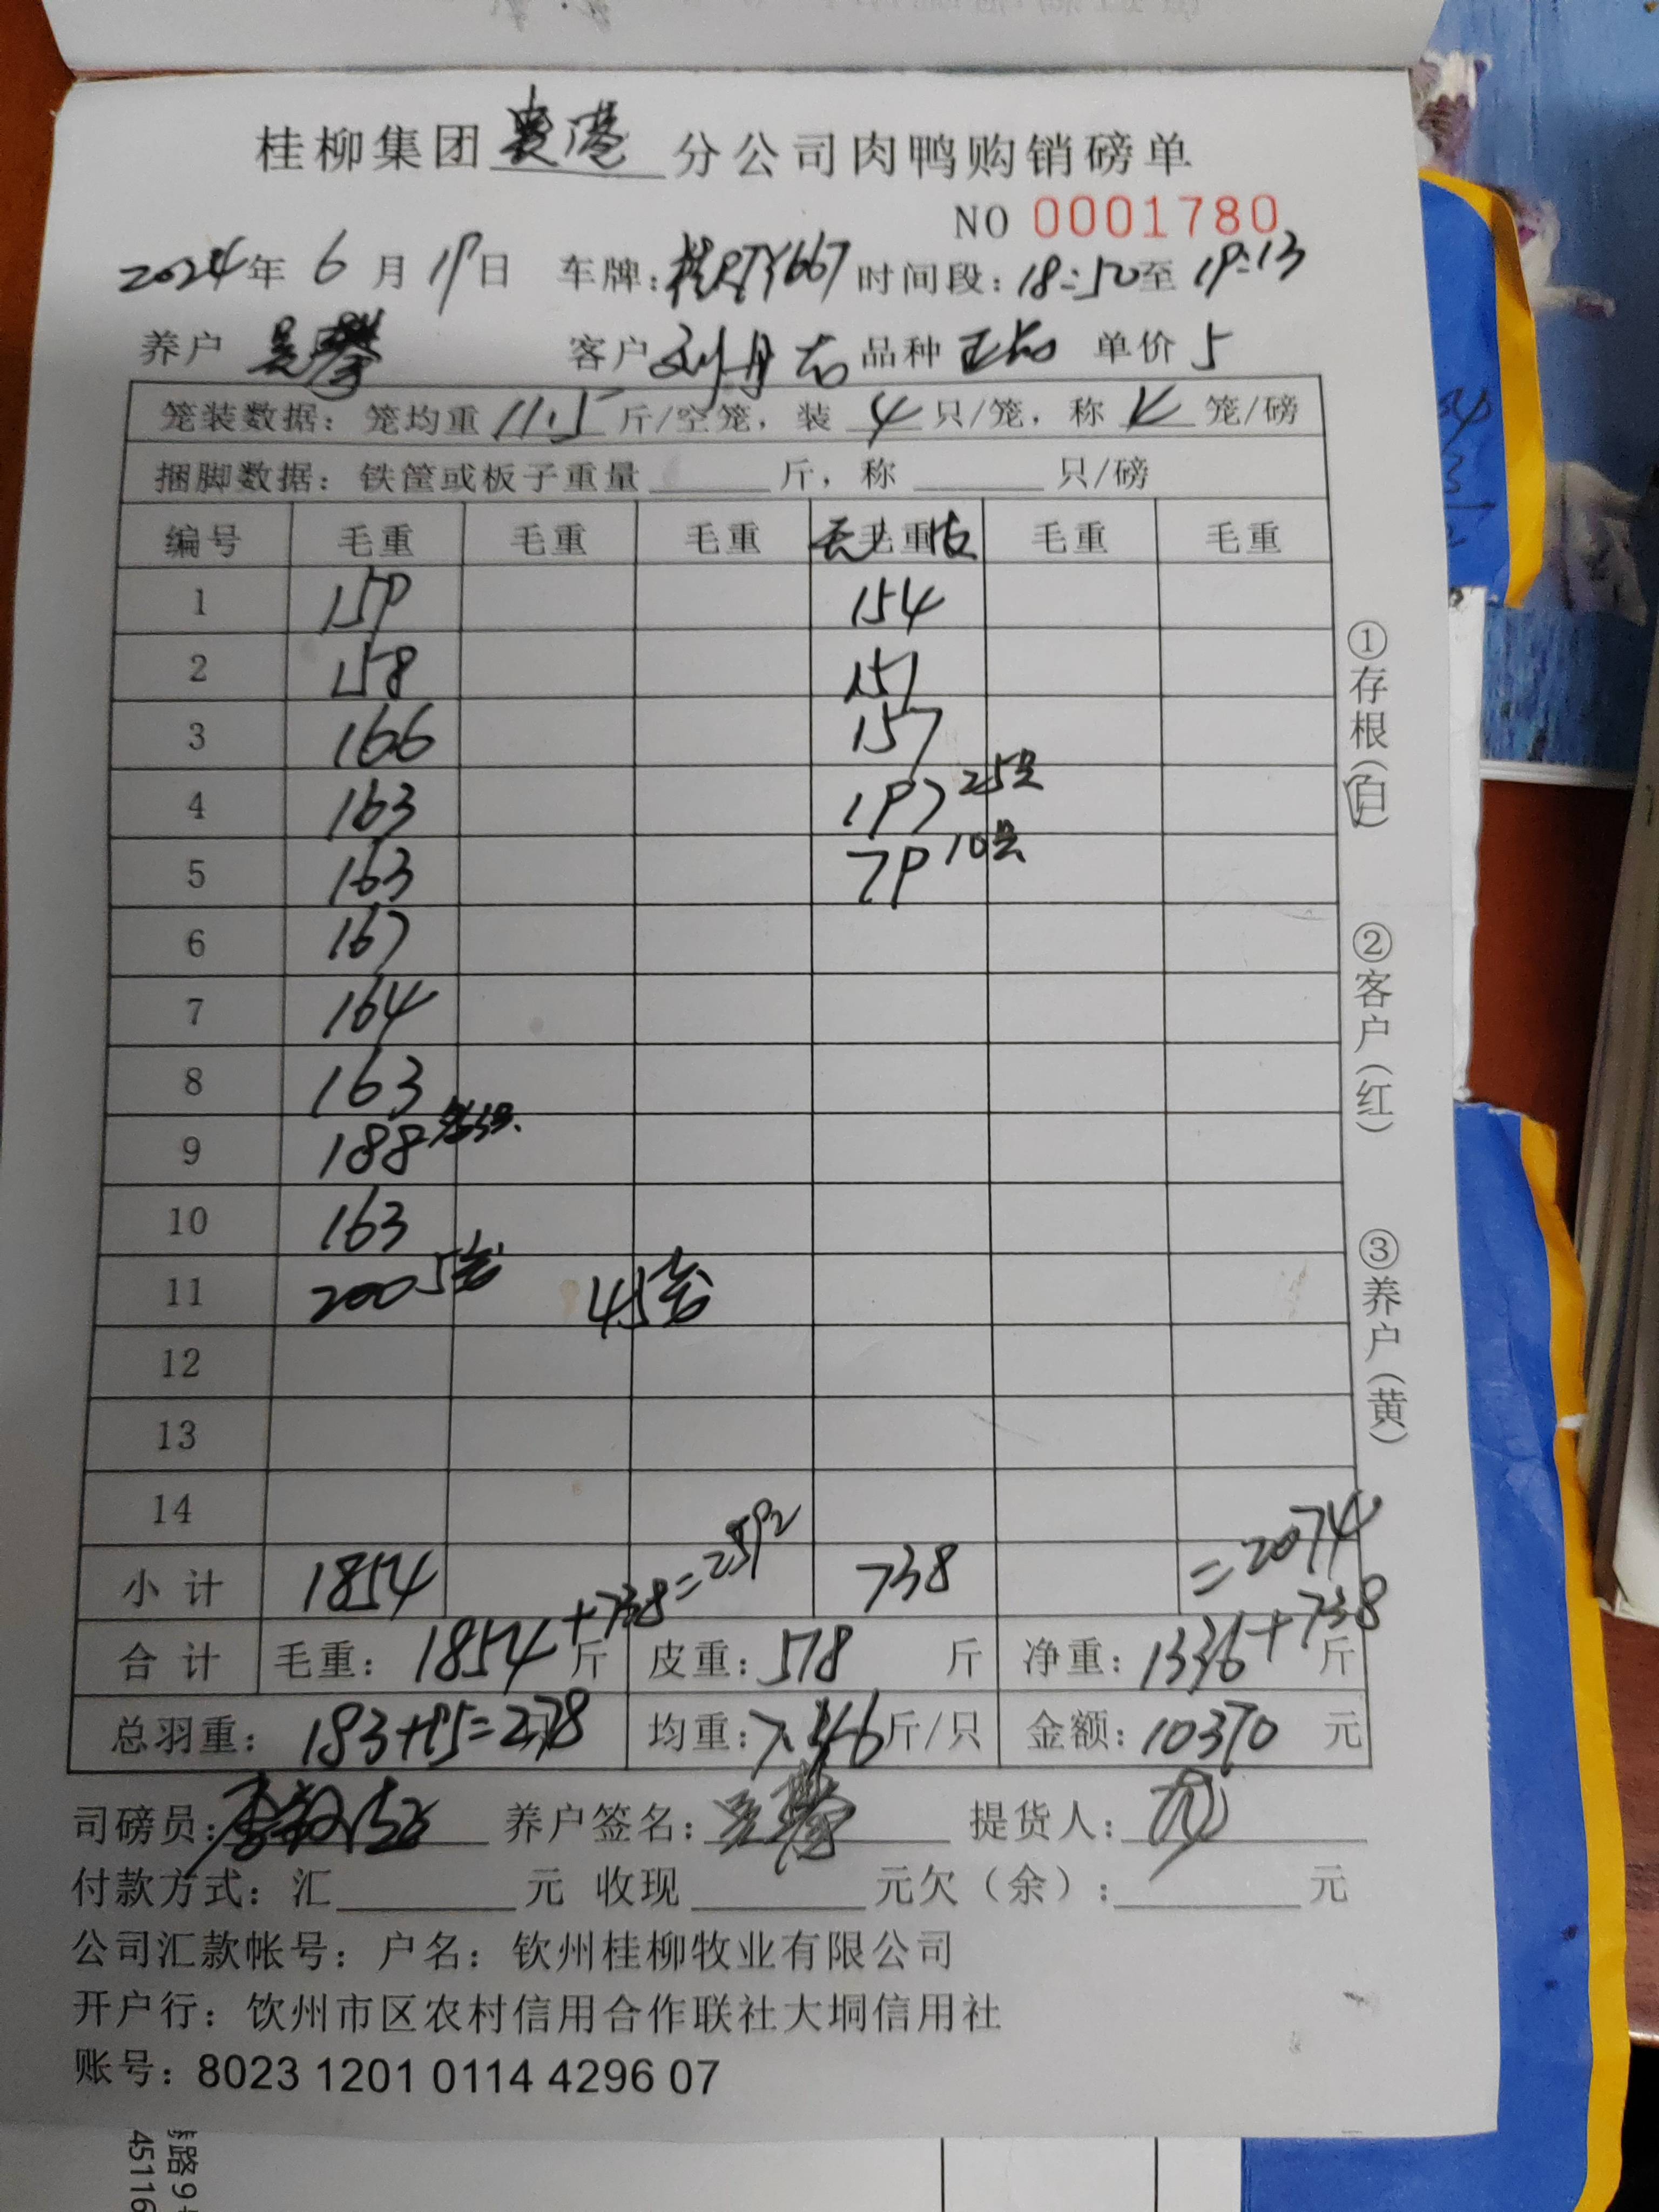 桂柳集团贵港分公司肉鸭购销磅单
NO 0001780
2024年 6 月 19日 车牌:桂RTY667 时间段:18:50至 19:13
养户 吴攀 客户 刘丹云 品种 王和 单价 5
笼装数据: 笼均重 11.5 斤/空笼, 装 4 只/笼, 称 4 笼/磅
捆脚数据: 铁筐或板子重量 斤, 称 只/磅
编号 毛重 毛重 毛重 毛重 毛重 毛重
1 159 154
2 158 151
3 166 157
4 163 197 25只
5 163 79 10只
6 167
7 164
8 163
9 188
10 163
11 200 5笼 45笼
12
13
14
小 计 1854 +738=2592 738 =2074
合 计 毛重: 1854 斤 皮重: 518 斤 净重: 1336+738 斤
总羽重: 183+95=278 均重: 7.46 斤/只 金额: 10370 元
司磅员: 养户签名: 吴攀 提货人:
付款方式: 汇 元 收现 元欠(余): 元
公司汇款帐号: 户名: 钦州桂柳牧业有限公司
开户行: 钦州市区农村信用合作联社大垌信用社
账号: 8023 1201 0114 4296 07
①存根(白)
②客户(红)
③养户(黄)
路9
45116